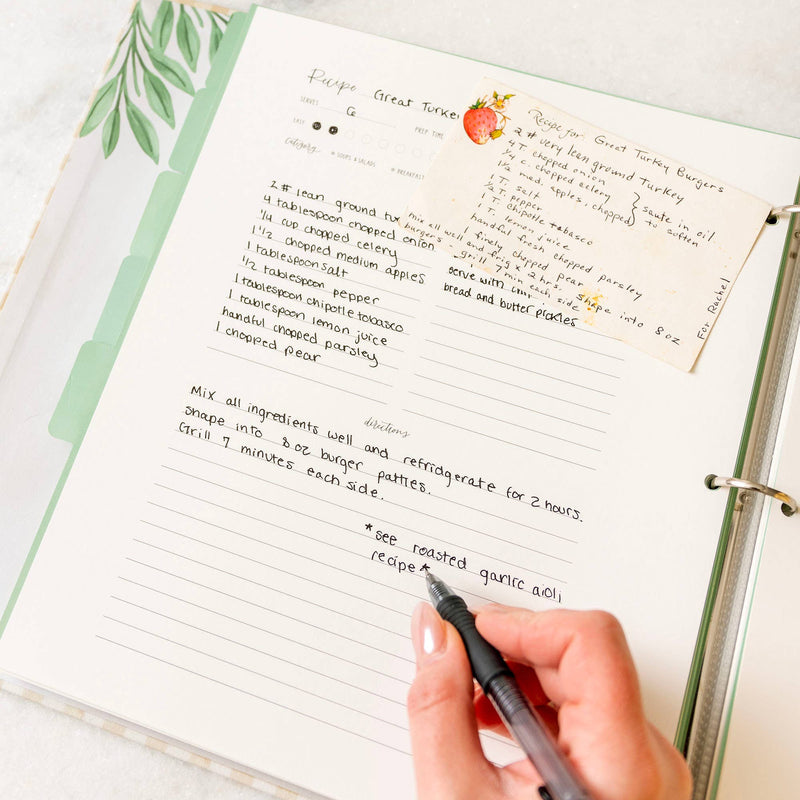 Recipe Great Turke
SERVES 6
EASY PREP TIME
Category SOUPS & SALADS BREAKFAST
2 # lean ground tu
4 tablespoon chopped onion
1/4 cup chopped celery
1 1/2 chopped medium apples
1 tablespoon salt
1/2 tablespoon pepper
1 tablespoon chipotle tobasco
1 tablespoon lemon juice
handful chopped parsley
1 chopped pear
serve with
bread and butter pickles
directions
Mix all ingredients well and refridgerate for 2 hours.
shape into 8 oz burger patties.
Grill 7 minutes each side.
*see roasted garlic aioli
recipe*
Recipe for: Great Turkey Burgers
2 # very lean ground Turkey
4 T. chopped onion
1/4 c. chopped celery
1 1/2 med. apples, chopped
} saute in oil
to soften
1 T. salt
1/2 T. pepper
1 T. Chipotle tobasco
1 T. lemon juice
handful fresh chopped parsley
1 finely chopped pear
mix all well and frig 2 hrs. Shape into 8 oz
burgers - grill 7 min each side
For Rachel